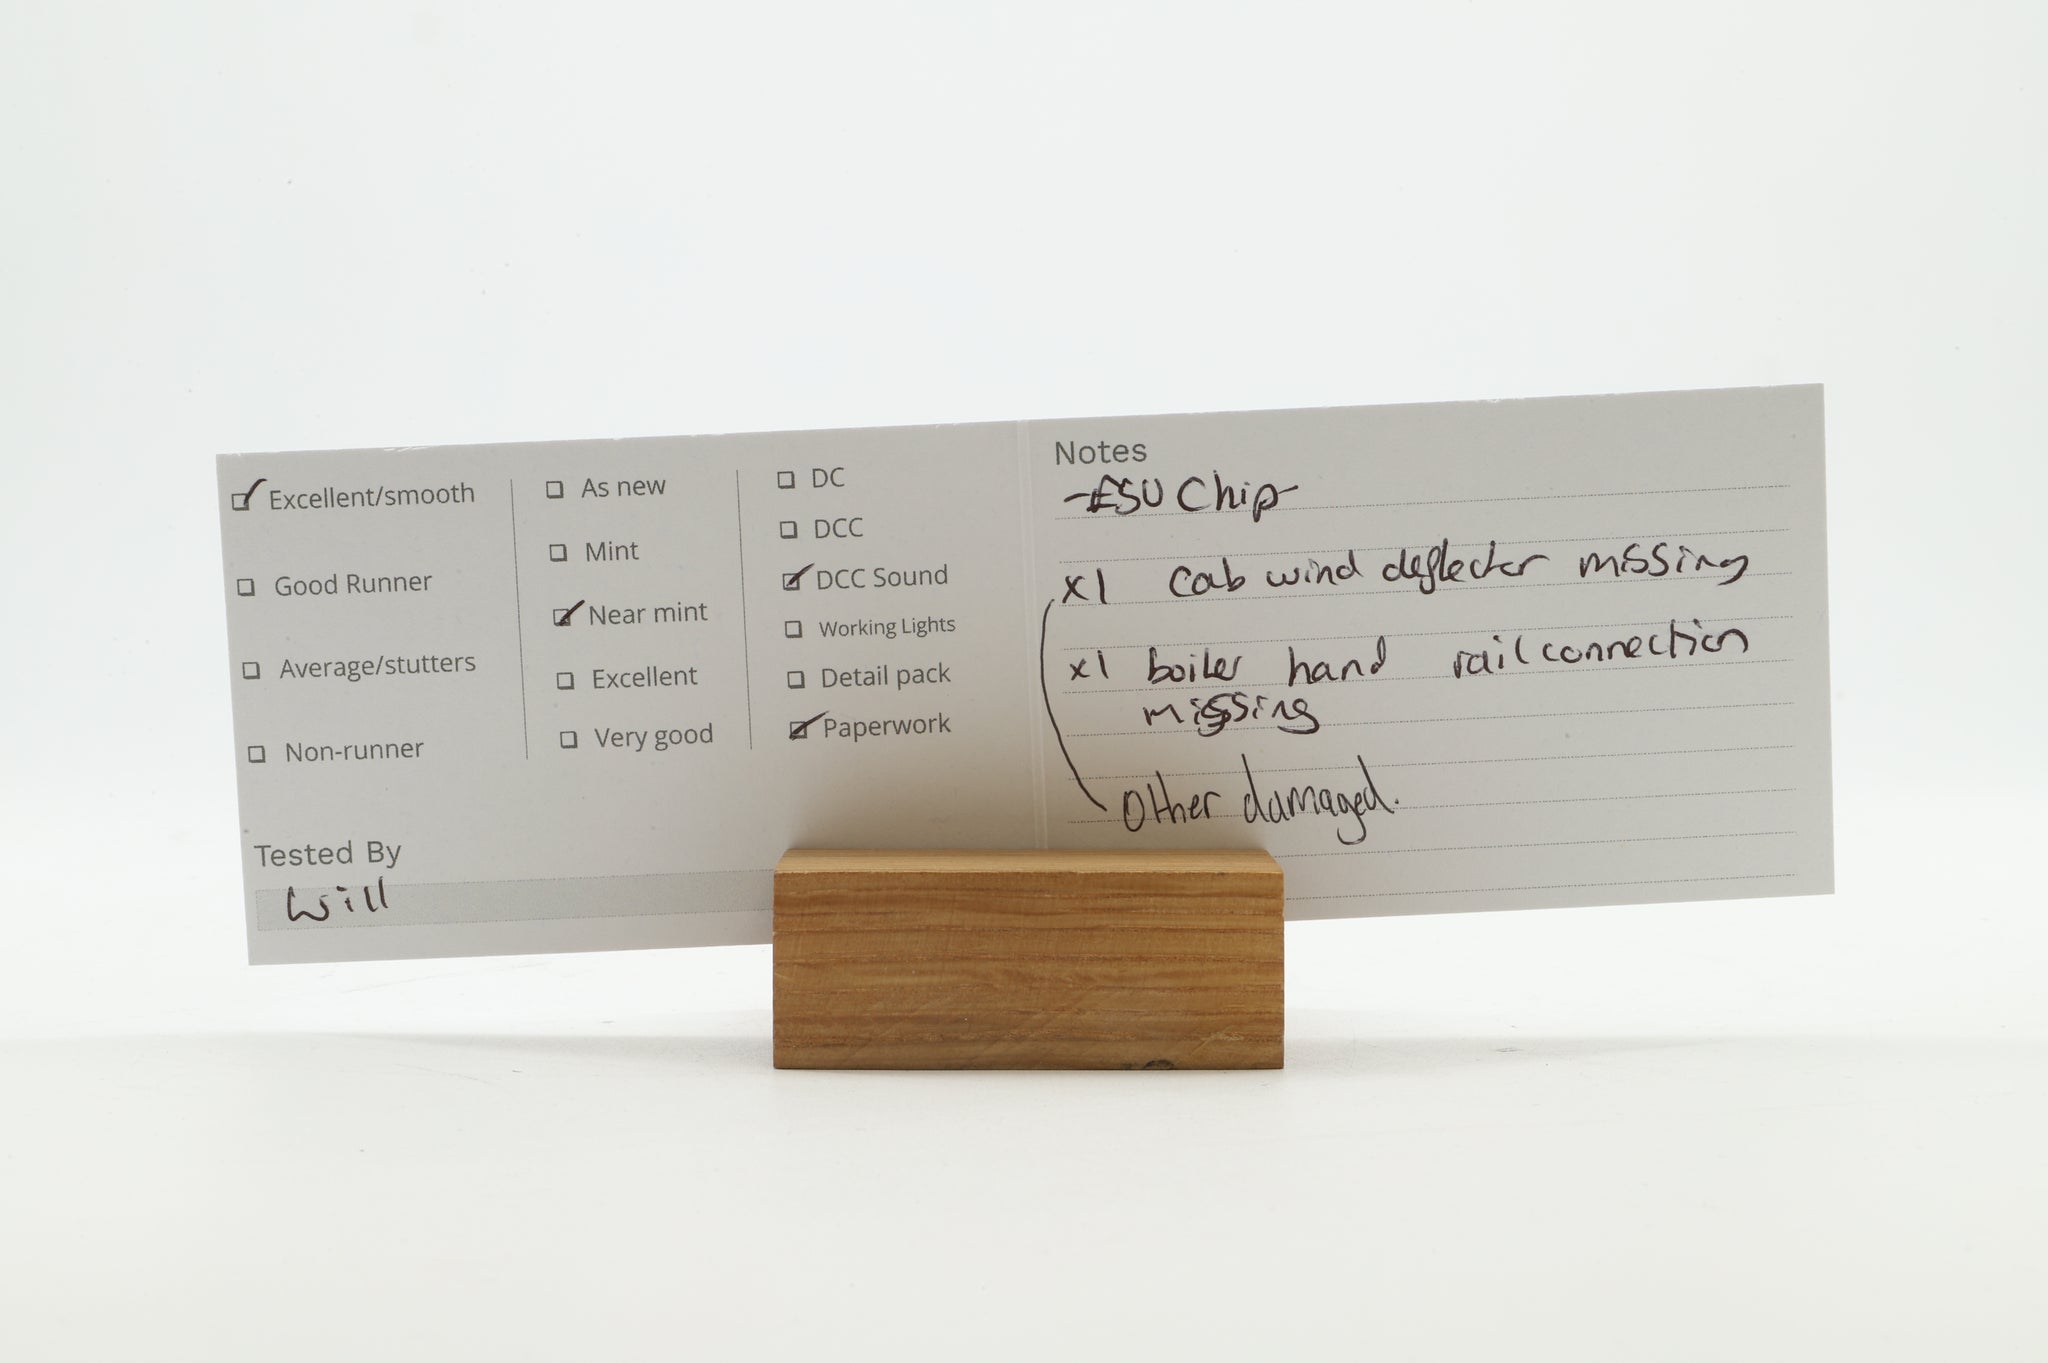 Excellent/smooth
Good Runner
Average/stutters
Non-runner
As new
Mint
Near mint
Excellent
Very good
DC
DCC
DCC Sound
Working Lights
Detail pack
Paperwork
Tested By
Will
Notes
-ESU Chip-
x1 cab wind deflector missing
x1 boiler hand rail connection
missing
Other damaged.